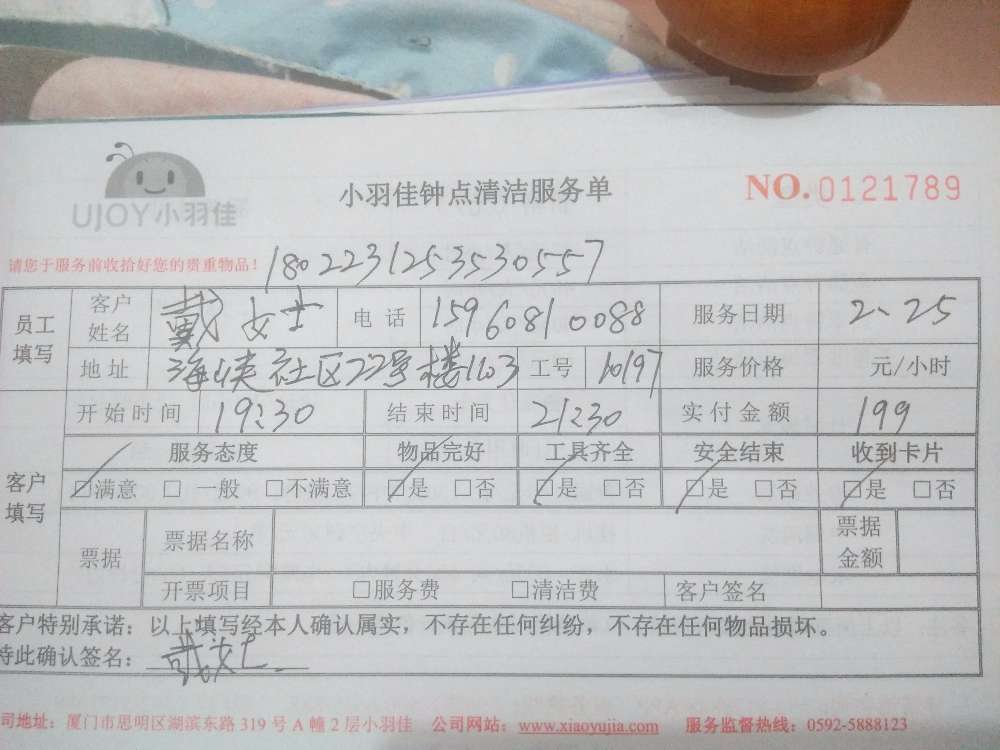 UJOY小羽佳
小羽佳钟点清洁服务单
NO.0121789
请您于服务前收拾好您的贵重物品！
180223125353530557
员工填写 客户姓名 戴女士 电话 15960810088 服务日期 2、25
地址 海峡社区22号楼1103 工号 10197 服务价格 元/小时
客户填写 开始时间 19:30 结束时间 21:30 实付金额 199
服务态度 物品完好 工具齐全 安全结束 收到卡片
☑满意 □ 一般 □不满意 ☑是 □否 ☑是 □否 ☑是 □否 ☑是 □否
票据 票据名称 票据金额
开票项目 □服务费 □清洁费 客户签名
客户特别承诺：以上填写经本人确认属实，不存在任何纠纷，不存在任何物品损坏。
特此确认签名：戴女士
司地址：厦门市思明区湖滨东路 319 号 A 幢 2 层小羽佳 公司网站：www.xiaoyujia.com 服务监督热线：0592-5888123